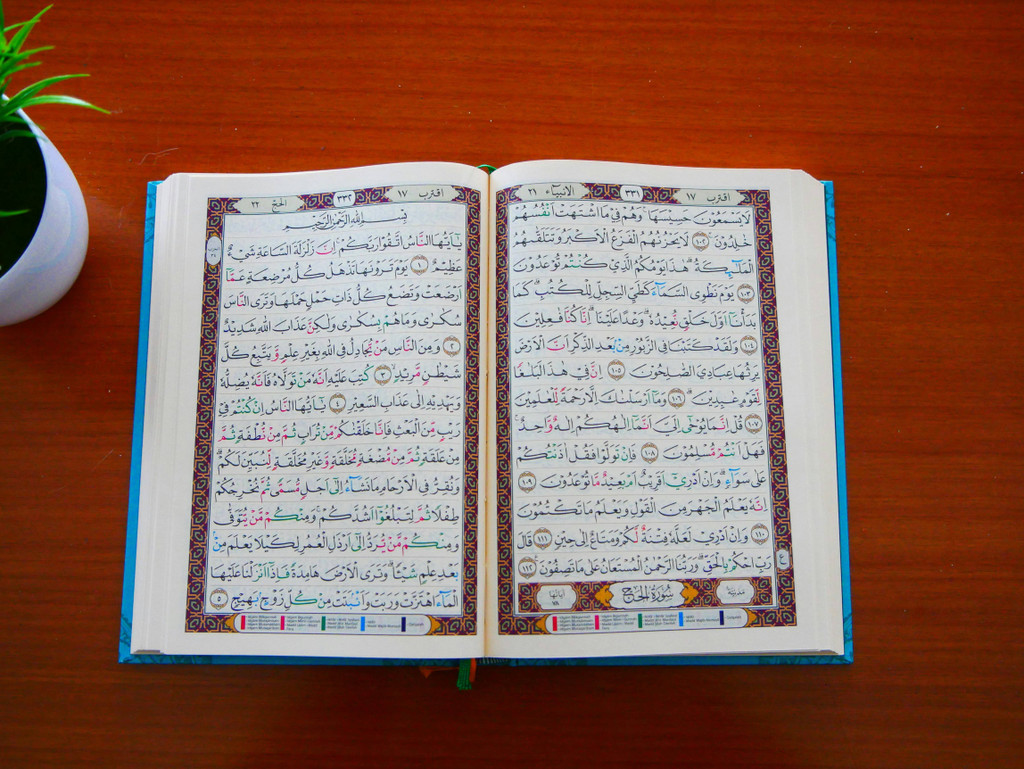 اقترب ١٧
٣٣١
الانبيآء ٢١
لَا يَسْمَعُوْنَ حَسِيْسَهَاۚ وَهُمْ فِيْ مَا اشْتَهَتْ اَنْفُسُهُمْ
خٰلِدُوْنَ ۚ ١٠٢ لَا يَحْزُنُهُمُ الْفَزَعُ الْاَكْبَرُ وَتَتَلَقّٰىهُمُ
الْمَلٰۤىِٕكَةُۗ هٰذَا يَوْمُكُمُ الَّذِيْ كُنْتُمْ تُوْعَدُوْنَ
١٠٣ يَوْمَ نَطْوِى السَّمَاۤءَ كَطَيِّ السِّجِلِّ لِلْكُتُبِۗ كَمَا
بَدَأْنَآ اَوَّلَ خَلْقٍ نُّعِيْدُهٗۗ وَعْدًا عَلَيْنَاۗ اِنَّا كُنَّا فٰعِلِيْنَ
١٠٤ وَلَقَدْ كَتَبْنَا فِى الزَّبُوْرِ مِنْۢ بَعْدِ الذِّكْرِ اَنَّ الْاَرْضَ
يَرِثُهَا عِبَادِيَ الصّٰلِحُوْنَ ١٠٥ اِنَّ فِيْ هٰذَا لَبَلٰغًا
لِّقَوْمٍ عٰبِدِيْنَ ۗ ١٠٦ وَمَآ اَرْسَلْنٰكَ اِلَّا رَحْمَةً لِّلْعٰلَمِيْنَ
١٠٧ قُلْ اِنَّمَا يُوْحٰٓى اِلَيَّ اَنَّمَآ اِلٰهُكُمْ اِلٰهٌ وَّاحِدٌۚ
فَهَلْ اَنْتُمْ مُّسْلِمُوْنَ ١٠٨ فَاِنْ تَوَلَّوْا فَقُلْ اٰذَنْتُكُمْ
عَلٰى سَوَاۤءٍۗ وَاِنْ اَدْرِيْٓ اَقَرِيْبٌ اَمْ بَعِيْدٌ مَّا تُوْعَدُوْنَ ١٠٩
اِنَّهٗ يَعْلَمُ الْجَهْرَ مِنَ الْقَوْلِ وَيَعْلَمُ مَا تَكْتُمُوْنَ
١١٠ وَاِنْ اَدْرِيْ لَعَلَّهٗ فِتْنَةٌ لَّكُمْ وَمَتَاعٌ اِلٰى حِيْنٍ ١١١ قٰلَ
رَبِّ احْكُمْ بِالْحَقِّۗ وَرَبُّنَا الرَّحْمٰنُ الْمُسْتَعَانُ عَلٰى مَا تَصِفُوْنَ ࣖ ١١٢
ع
مدنية
سُوْرَةُ الْحَجِّ
اٰياتها ٧٨
اقترب ١٧
٣٣٢
الحج ٢٢
بِسْمِ اللّٰهِ الرَّحْمٰنِ الرَّحِيْمِ
يٰٓاَيُّهَا النَّاسُ اتَّقُوْا رَبَّكُمْۚ اِنَّ زَلْزَلَةَ السَّاعَةِ شَيْءٌ
عَظِيْمٌ ١ يَوْمَ تَرَوْنَهَا تَذْهَلُ كُلُّ مُرْضِعَةٍ عَمَّآ
اَرْضَعَتْ وَتَضَعُ كُلُّ ذَاتِ حَمْلٍ حَمْلَهَا وَتَرَى النَّاسَ
سُكٰرٰى وَمَا هُمْ بِسُكٰرٰى وَلٰكِنَّ عَذَابَ اللّٰهِ شَدِيْدٌ
٢ وَمِنَ النَّاسِ مَنْ يُّجَادِلُ فِى اللّٰهِ بِغَيْرِ عِلْمٍ وَّيَتَّبِعُ كُلَّ
شَيْطٰنٍ مَّرِيْدٍۙ ٣ كُتِبَ عَلَيْهِ اَنَّهٗ مَنْ تَوَلَّاهُ فَاَنَّهٗ يُضِلُّهٗ
وَيَهْدِيْهِ اِلٰى عَذَابِ السَّعِيْرِ ٤ يٰٓاَيُّهَا النَّاسُ اِنْ كُنْتُمْ فِيْ
رَيْبٍ مِّنَ الْبَعْثِ فَاِنَّا خَلَقْنٰكُمْ مِّنْ تُرَابٍ ثُمَّ مِنْ نُّطْفَةٍ ثُمَّ
مِنْ عَلَقَةٍ ثُمَّ مِنْ مُّضْغَةٍ مُّخَلَّقَةٍ وَّغَيْرِ مُخَلَّقَةٍ لِّنُبَيِّنَ لَكُمْۗ
وَنُقِرُّ فِى الْاَرْحَامِ مَا نَشَاۤءُ اِلٰٓى اَجَلٍ مُّسَمًّى ثُمَّ نُخْرِجُكُمْ
طِفْلًا ثُمَّ لِتَبْلُغُوْٓا اَشُدَّكُمْۚ وَمِنْكُمْ مَّنْ يُّتَوَفّٰى
وَمِنْكُمْ مَّنْ يُّرَدُّ اِلٰٓى اَرْذَلِ الْعُمُرِ لِكَيْلَا يَعْلَمَ مِنْۢ
بَعْدِ عِلْمٍ شَيْـًٔاۗ وَتَرَى الْاَرْضَ هَامِدَةً فَاِذَآ اَنْزَلْنَا عَلَيْهَا
الْمَاۤءَ اهْتَزَّتْ وَرَبَتْ وَاَنْۢبَتَتْ مِنْ كُلِّ زَوْجٍۢ بَهِيْجٍ ٥